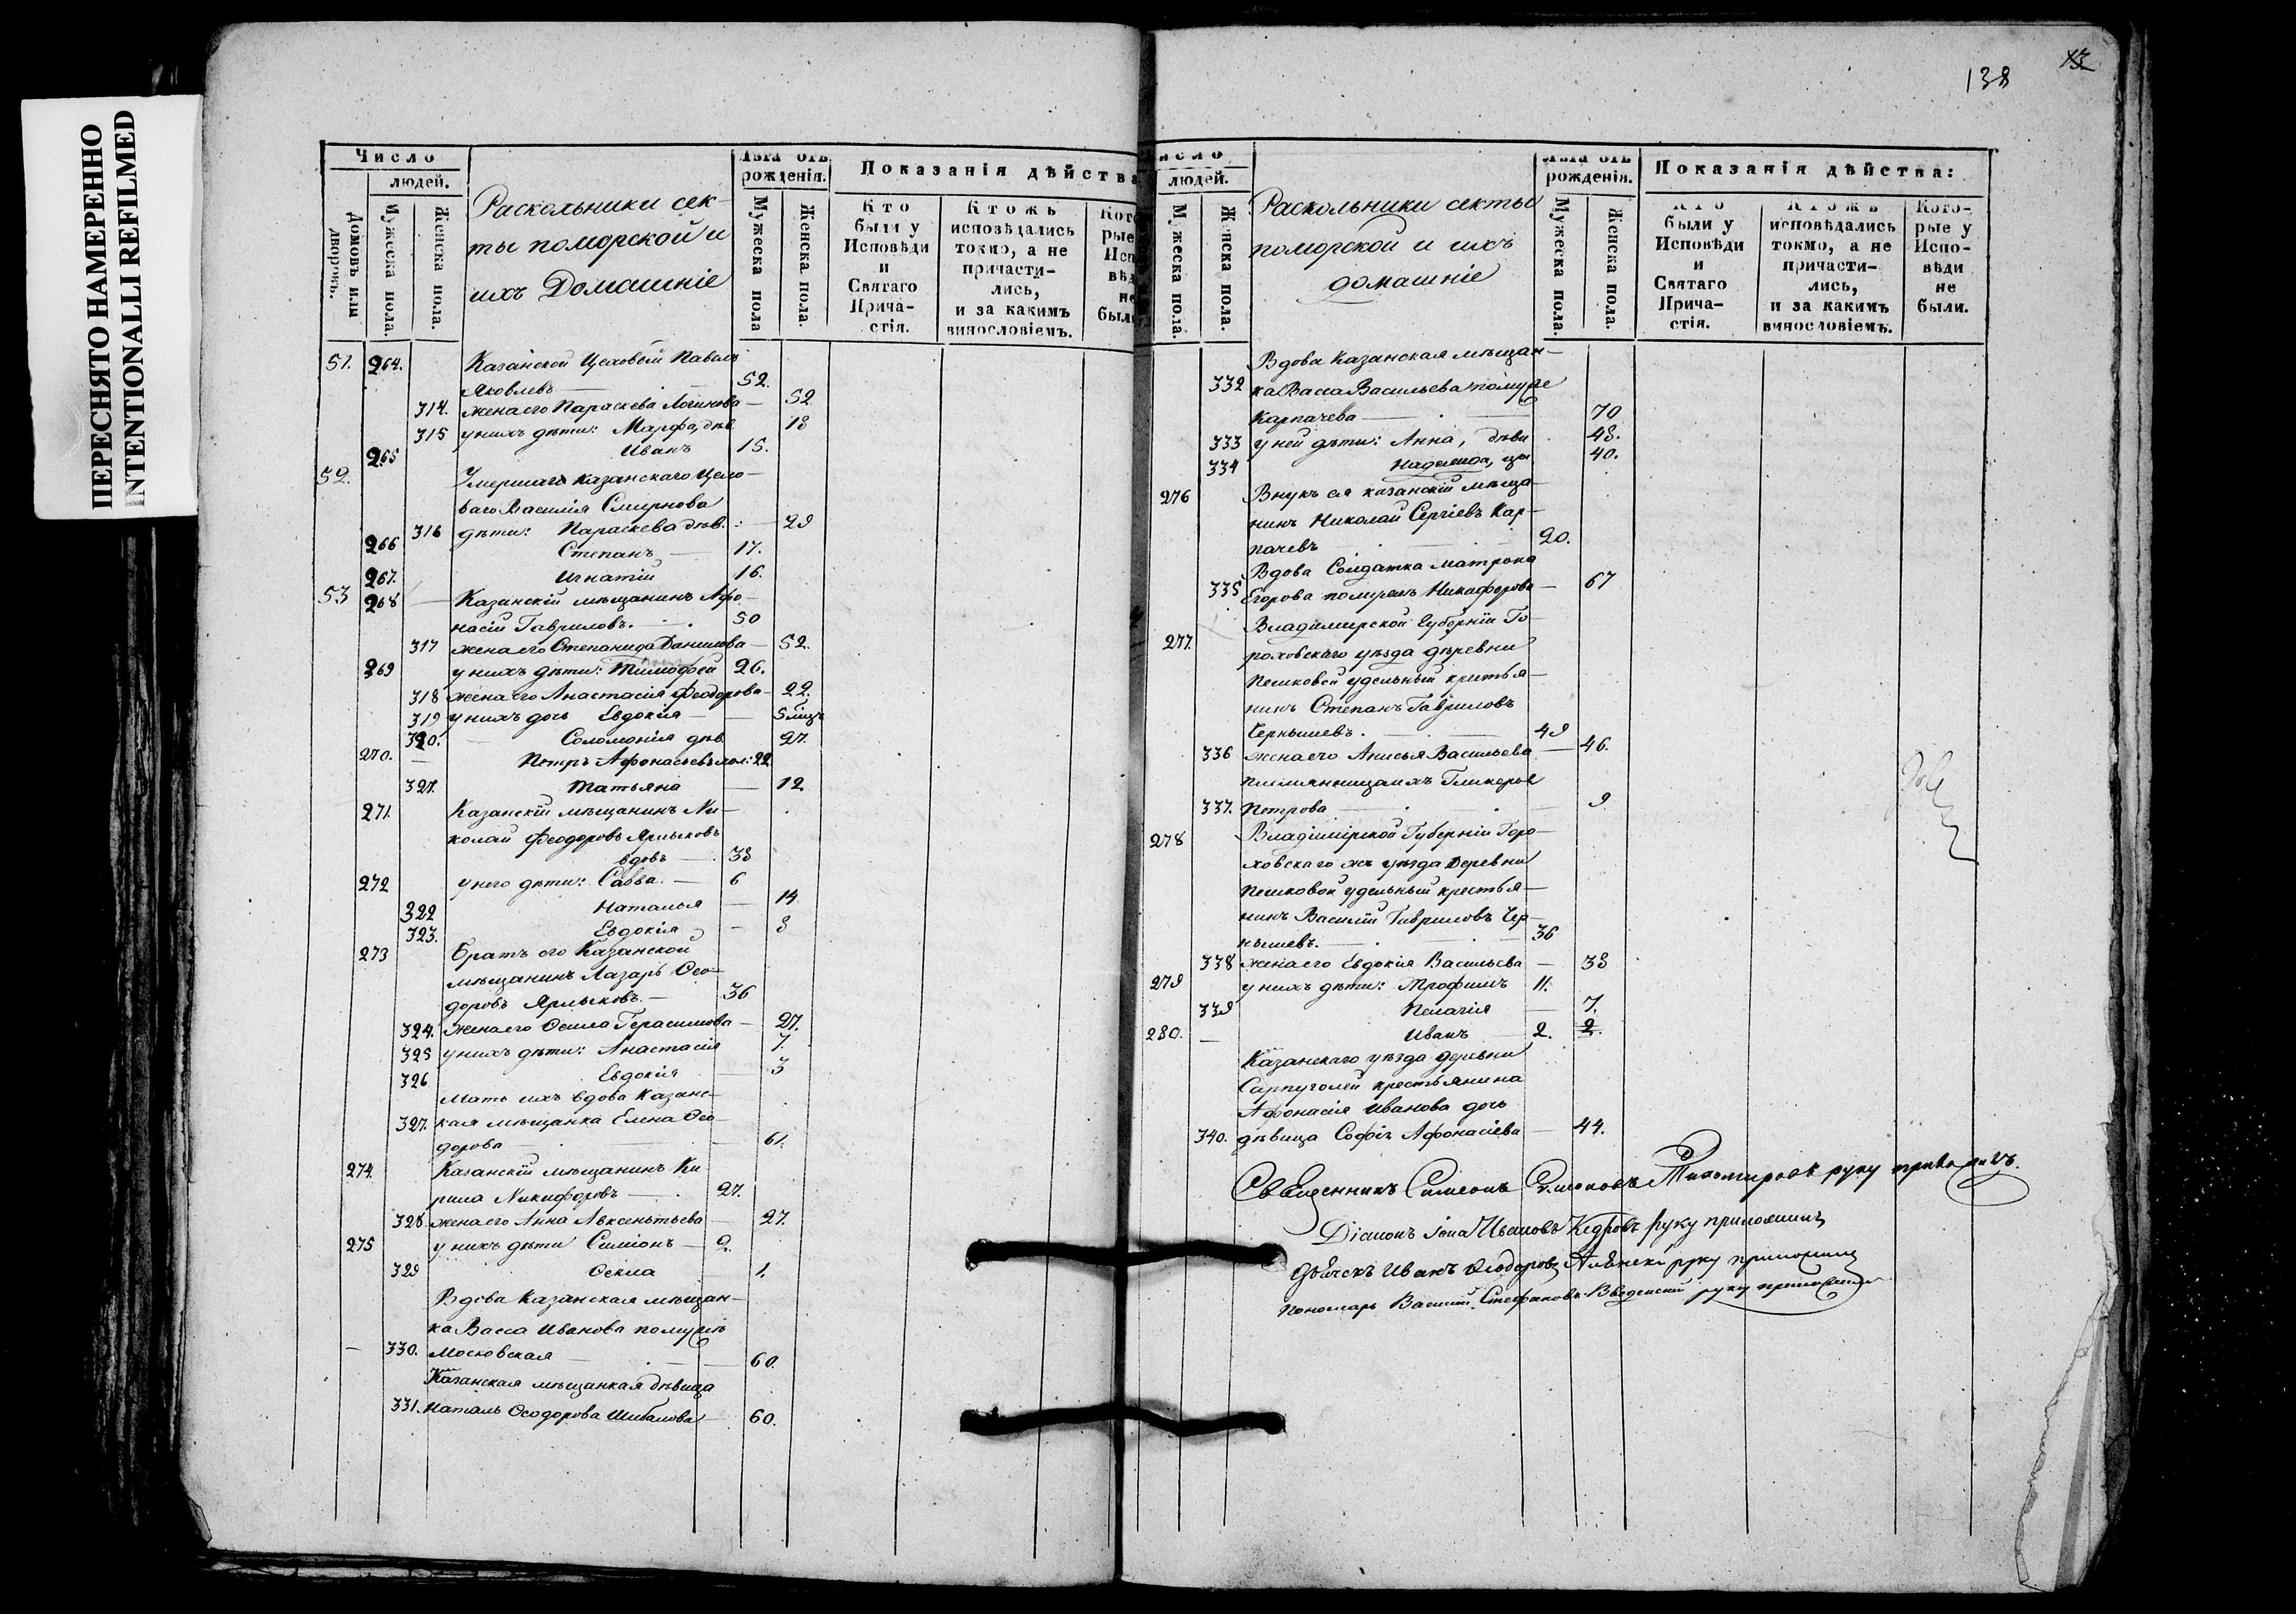 ПЕРЕСНЯТО НАМЕРЕННО
INTENTIONALLI REFILMED
Число
людей.
Домовъ или дворовъ.
Мужеска пола.
Женска пола.
Раскольники сек-
ты поморской и
ихъ Домашніе
Лѣта отъ
рожденія.
Мужеска пола
Женска пола.
Показанія дѣйства
Кто
были у
Исповѣди
и
Святаго
Прича-
стія.
Ктожъ
исповѣдались
токмо, а не
причасти-
лись,
и за какимъ
винословіемъ.
51. 264. Казанской Цеховой Павелъ
Яковлевъ 52.
314. жена его Параскева Логинова 52
315 у нихъ дѣти: Марѳа, дѣв. 18
265 Иванъ 15.
52. Умершаго казанскаго Цехо-
ваго Василія Смирнова
316 дѣти: Параскева дѣв. 29
266 Степанъ 17.
267. Игнатій 16.
53 268 Казанскій мѣщанинъ Афо-
насій Гавриловъ. 50
317 жена его Степанида Данилова 52.
269 у нихъ дѣти: Тимофей 26.
318 жена его Анастасія Феодорова 22.
319 у нихъ дочь Евдокія 5 мѣц
320. Соломонія дѣв. 27.
270. Петръ Афонасьевъ хол: 22
321. Татьяна 12
271. Казанскій мѣщанинъ Ни-
колай Феодоровъ Ярлыковъ
вдовъ 38
272 у него дѣти: Савва. 6
322 Наталья 14
323. Евдокія 8
273 Братъ его Казанской
мѣщанинъ Лазарь Ѳео-
доровъ Ярлыковъ. 36
324. жена его Ѳекла Герасимова 27.
325 у нихъ дѣти: Анастасія 7.
326 Евдокія 3
Мать ихъ вдова Казанс-
327. кая мѣщанка Елена Ѳео-
дорова 61.
274. Казанскій мѣщанинъ Ки
рила Никифоровъ 27.
328. жена его Анна Авксентьева 27.
275 у нихъ дѣти Симіонъ 2.
329 Ѳекла 1.
Вдова Казанская мѣщан-
ка Васса Иванова по мужѣ
330. Московская 60.
Казанская мѣщанкая дѣвица
331. Наталь Ѳеодорова Шибалова 60.
138
13
Число
людей.
Мужеска пола.
Женска пола.
Раскольники секты
поморской и ихъ
домашніе
Лѣта отъ
рожденія.
Мужеска пола.
Женска пола.
Показанія дѣйства:
Кто
были у
Исповѣди
и
Святаго
Прича-
стія.
Ктожъ
исповѣдались
токмо, а не
причасти-
лись,
и за какимъ
винословіемъ.
Кото-
рые у
Испо-
вѣди
не
были.
Вдова Казанская мѣщан-
332 ка Васса Васильева по мужѣ
Карпачева 70
333 у ней дѣти: Анна, дѣви 48.
334 Надежда, 40.
276 Внукъ ея казанскій мѣща-
нинъ Николай Сергіевъ Кар-
пачевъ 20.
Вдова Солдатка Матрона
335 Егорова по мужѣ Никифорова 67
277. Владимирской Губерніи Го-
роховскаго уѣзда деревни
Пешковой удельный кретья-
нинъ Степанъ Гавриловъ
Чернышевъ. 49
336 жена его Анисья Васильева 46.
племянница ихъ Гликерья
337. Петрова 9
278 Владимірской Губерніи Горо-
ховскаго жъ уѣзда Деревни
Пешковой удельный крестья-
нинъ Василій Гавриловъ Чер-
нышевъ. 36
338 жена его Евдокія Васильева 38
279 у нихъ дѣти: Трофимъ 11.
339 Пелагія 7.
280. Иванъ 2. 2.
Казанскаго уѣзда деревни
Сарпуголей крестьянина
Афонасія Иванова дочь
340. дѣвица Софія Афонасіева 44.
Священникъ Симеонъ Тихомировъ руку приложилъ.
Діаконъ Іона Ивановъ Кедровъ руку приложилъ
Дьячекъ Иванъ Ѳеодоровъ руку приложилъ
Пономарь Василій Стефановъ Введенскій руку приложилъ